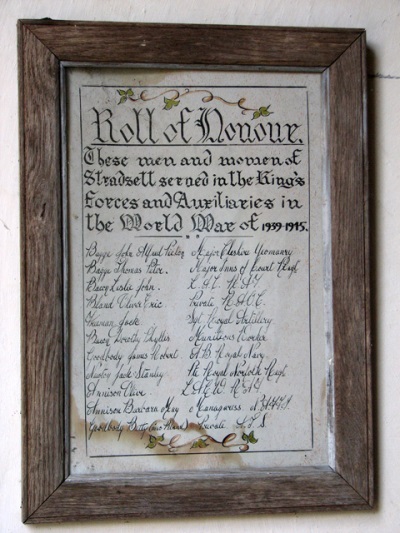 Roll of Honour.
These men and women of
Stradsett served in the King's
Forces and Auxiliaries in
the World War of 1939-1945.
Bagge John Alfred Major Cheshire Yeomanry
Bagge Thomas Peter. Major Inns of Court Regt
Leslie John.
Bland Oliver Eric Private R.A.O.C.
Jack Sgt Royal Artillery
Dorothy Phyllis Munitions Worker
Goodbody James Robert A.B. Royal Navy
Jack Stanley Pte Royal Norfolk Regt
Annison Olive
Annison Barbara May Manageress N.A.A.F.I.
Goodbody Private